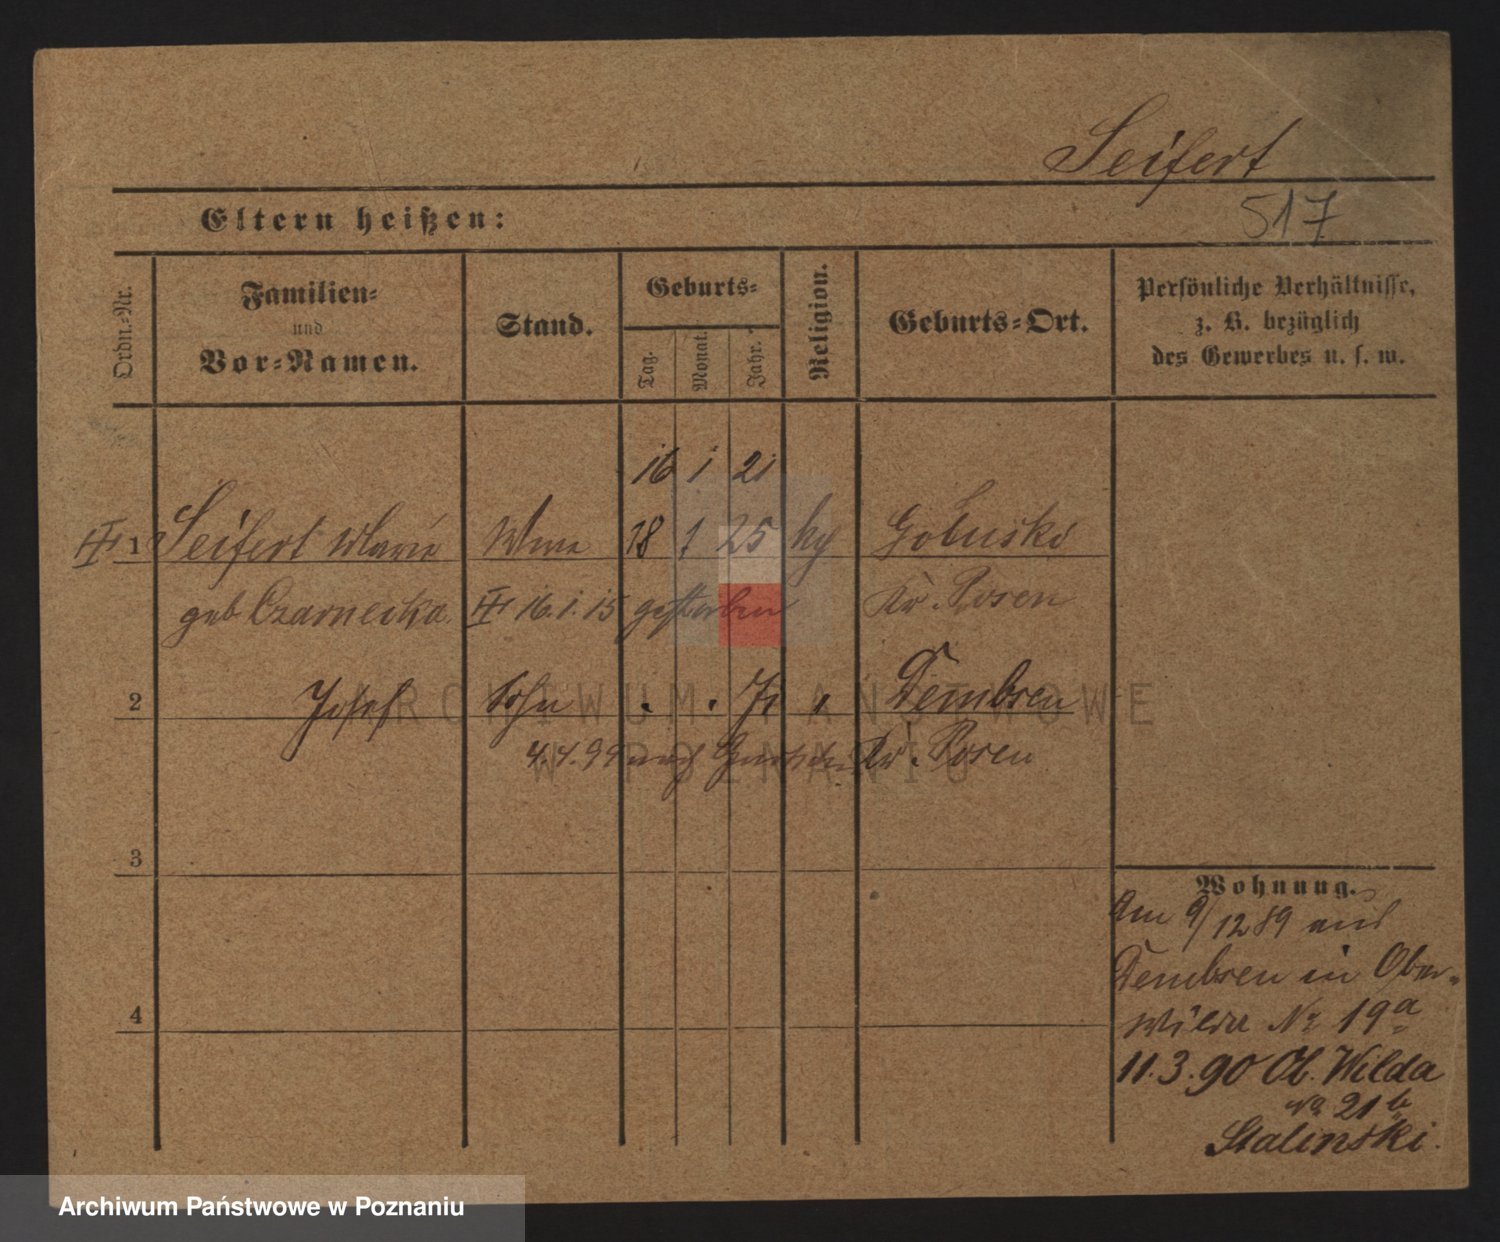 Seifert
517
Eltern heißen:
Ordn.-Nr.
Familien-
und
Vor-Namen.
Stand.
Geburts-
Tag.
Monat.
Jahr.
Religion.
Geburts-Ort.
Persönliche Verhältnisse,
z. B. bezüglich
des Gewerbes u. s. w.
16 1 21
1 Seifert Marie Wwe 18 1 25 Goluski
geb Czarnecka 16.1.15 gestorben Kr. Posen
2 Josef Sohn . . 71 " Dembsen
4.4.99 nach Kr. Posen
3
4
Wohnung.
Am 9/12 89 aus
Dembsen in Ober-
Wilda Nr 19a
11.3.90 Ob. Wilda
No 21b
Stalinski.
ARCHIWUM PAŃSTWOWE
W POZNANIU
Archiwum Państwowe w Poznaniu